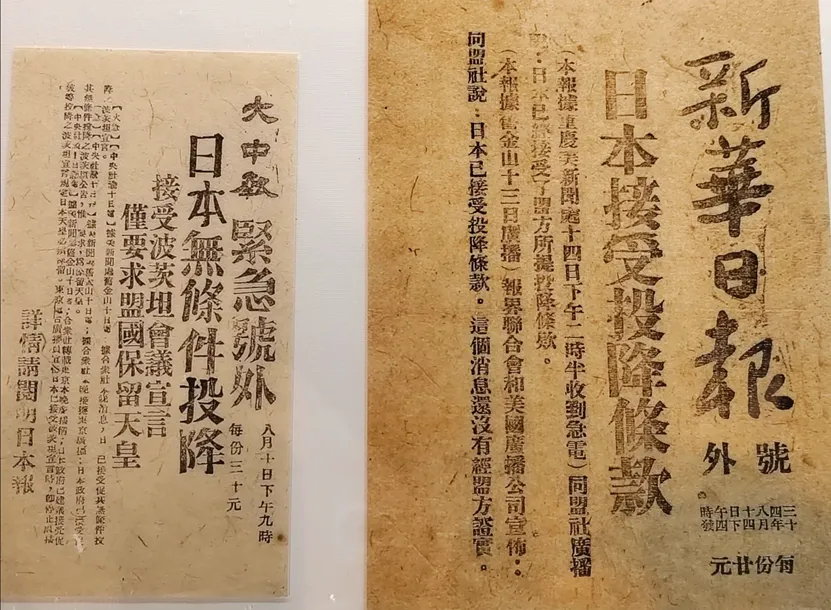 新華日報
號外
三十四年八月十四日下午四時發
每份廿元
日本接受投降條款
(本報據重慶美新聞處十四日下午二時半收到急電)同盟社廣播
:日本已經接受了盟方所提投降條款。
(本報據舊金山十三日廣播)報界聯合會和美國廣播公司宣佈:
同盟社說:日本已接受投降條款。這個消息還沒有經盟方證實。
大中報
緊急號外
八月十日下午九時
每份三十元
日本無條件投降
接受波茨坦會議宣言
僅要求盟國保留天皇
【大急】【中央社渝十日電】據美新聞處舊金山十日電 據合衆社本晚消息,日 已接受促其無條件投
降之波茨坦宣言。
詳情請閱明日本報